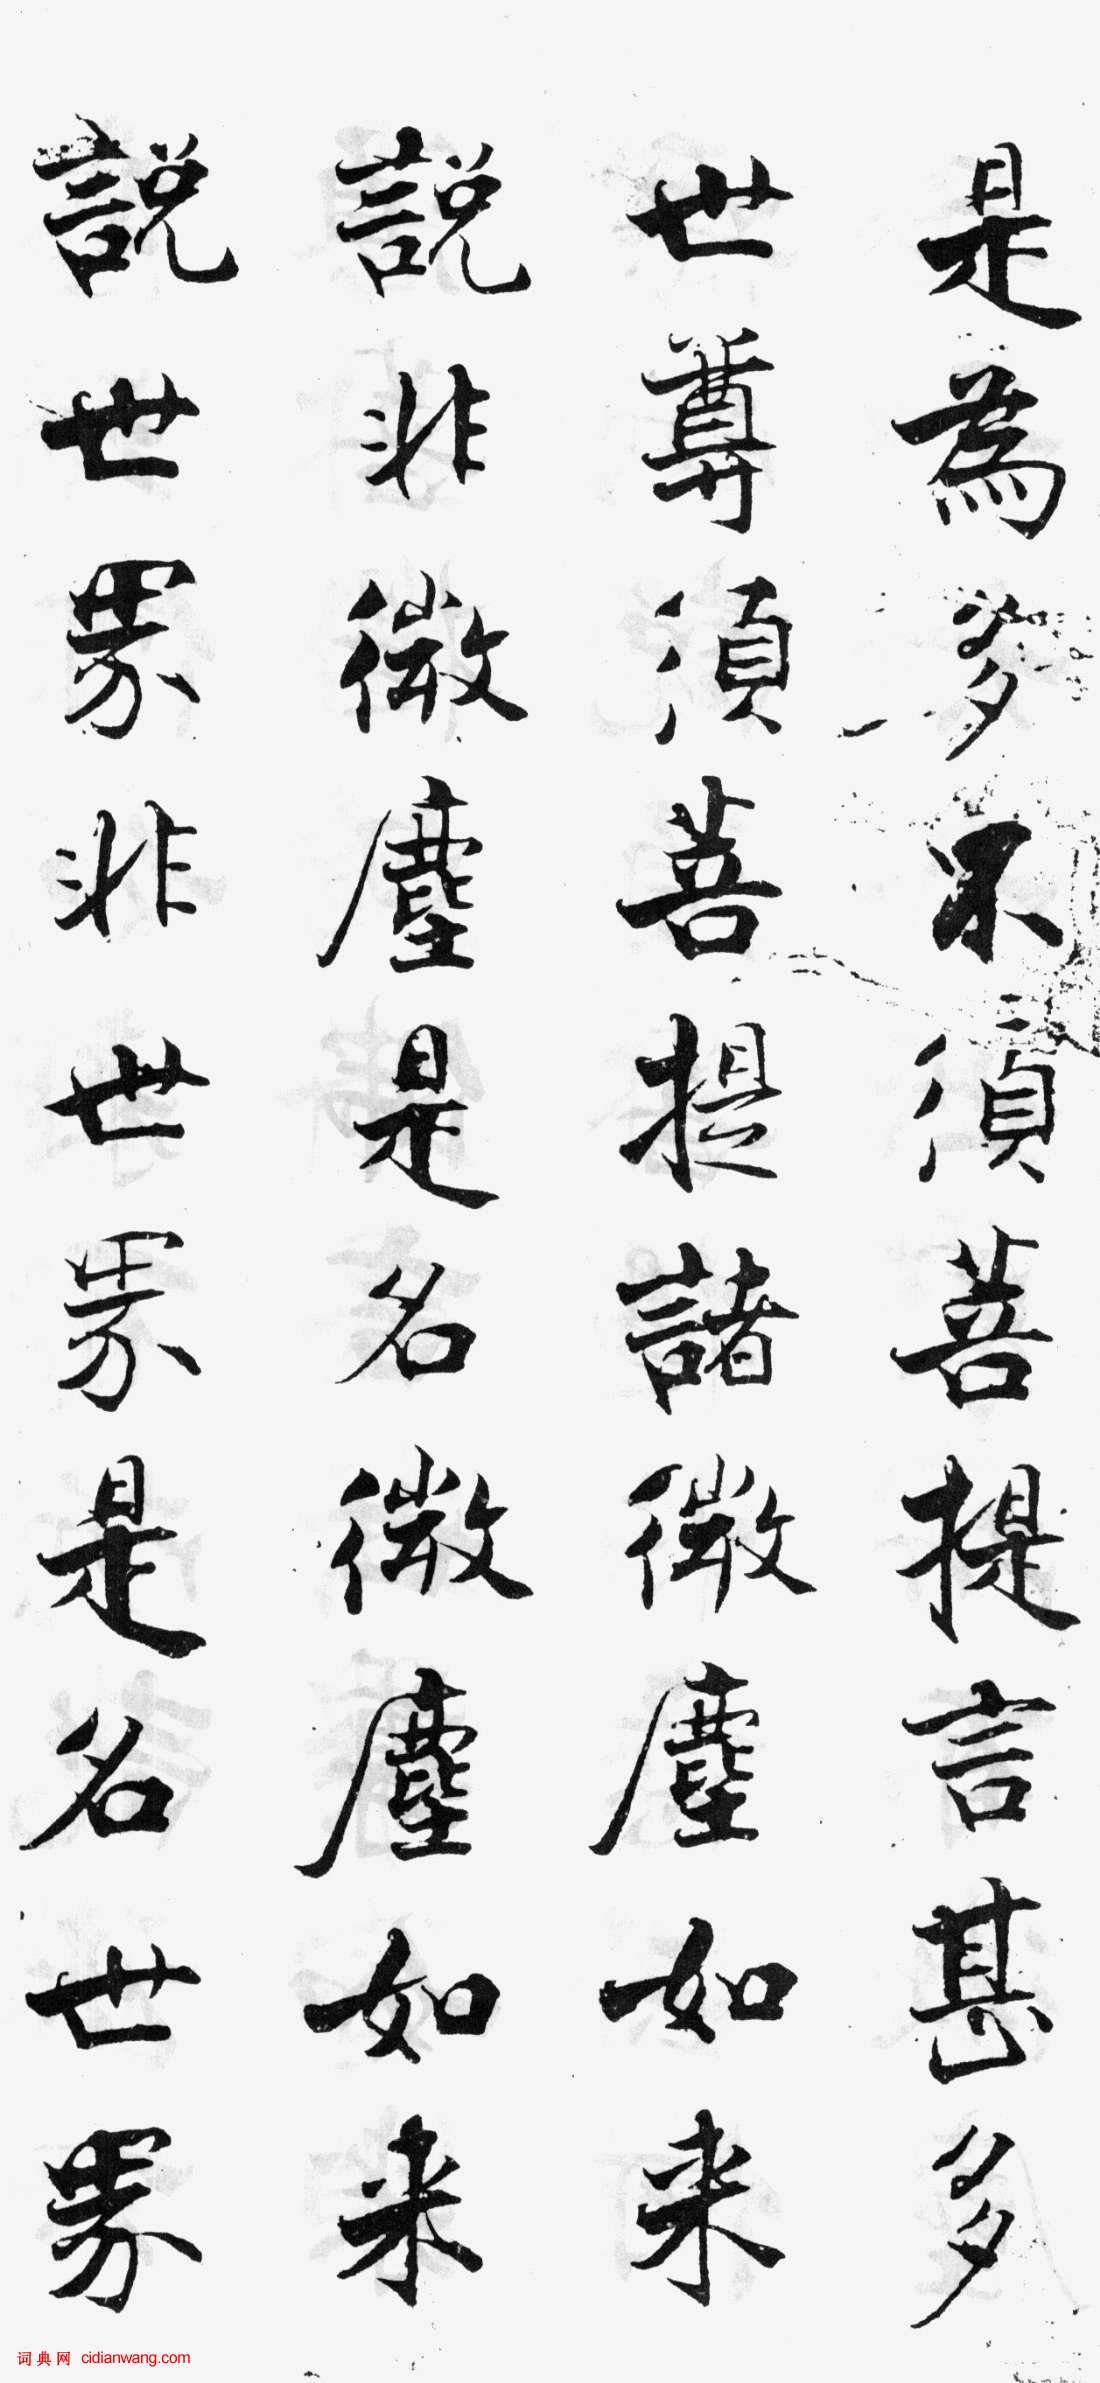 是為多不須菩提言甚多
世尊須菩提諸微塵如来
說非微塵是名微塵如来
說世界非世界是名世界
词典网 cidianwang.com